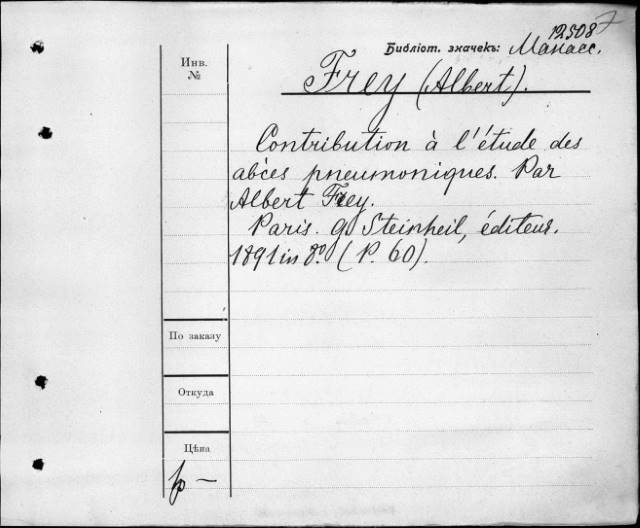 12508
Библіот. значекъ: Манасс.
Инв.
№
Frey (Albert).
Contribution à l'étude des
abcès pneumoniques. Par
Albert Frey.
Paris. G. Steinheil, éditeur.
1891 in 8º (P. 60).
По заказу
Откуда
Цѣна